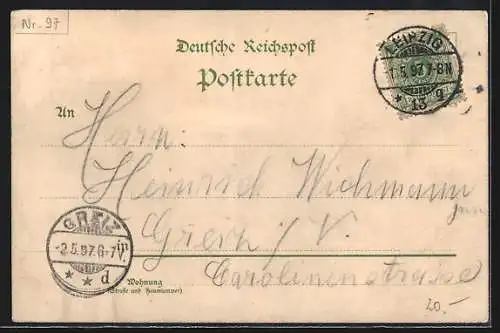 Nr. 97
Deutsche Reichspost
Postkarte
LEIPZIG
1.5.97.7-8N
* 13 g
An
Herrn
Heinrich Wichmann
jun.
Greiz i/V.
Carolinenstrasse
GREIZ
-2.5.97.6-7V.
* * d
Wohnung
(Straße und Hausnummer)
20.-